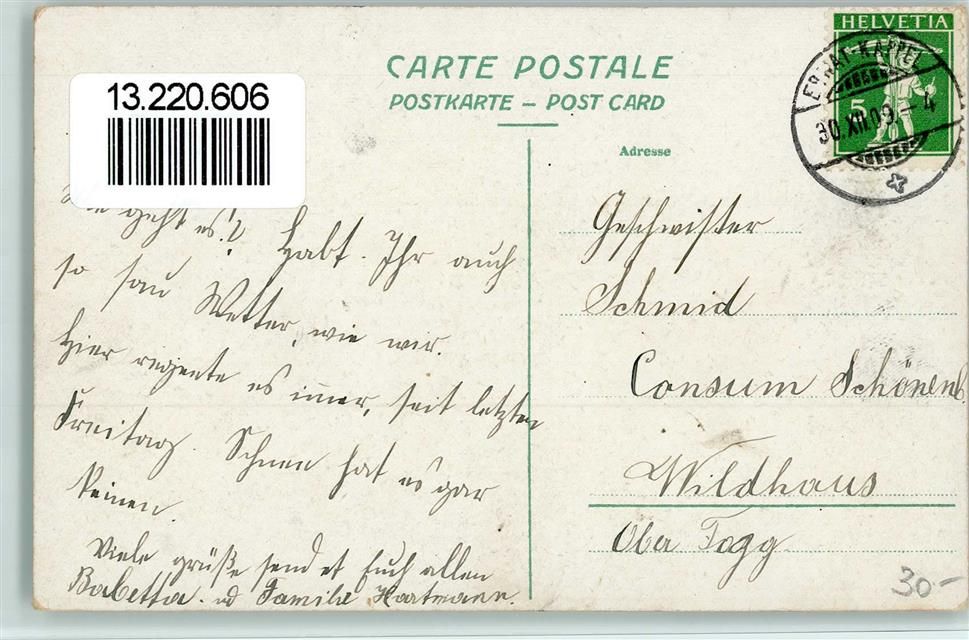 13.220.606
CARTE POSTALE
POSTKARTE – POST CARD
Adresse
HELVETIA
5
EBNAT-KAPPEL
30.XII.09.–4
Wie geht es!? Habt Ihr auch
so sau Wetter, wie wir.
Hier regnete es immer, seit letzten
Freitag. Schnee hat es gar
keinen.
Viele grüße sendet Euch allen
Babetta. ud Familie Hartmann.
Geschwister
Schmid
Consum Schönenb.
Wildhaus
Ober Togg
30-